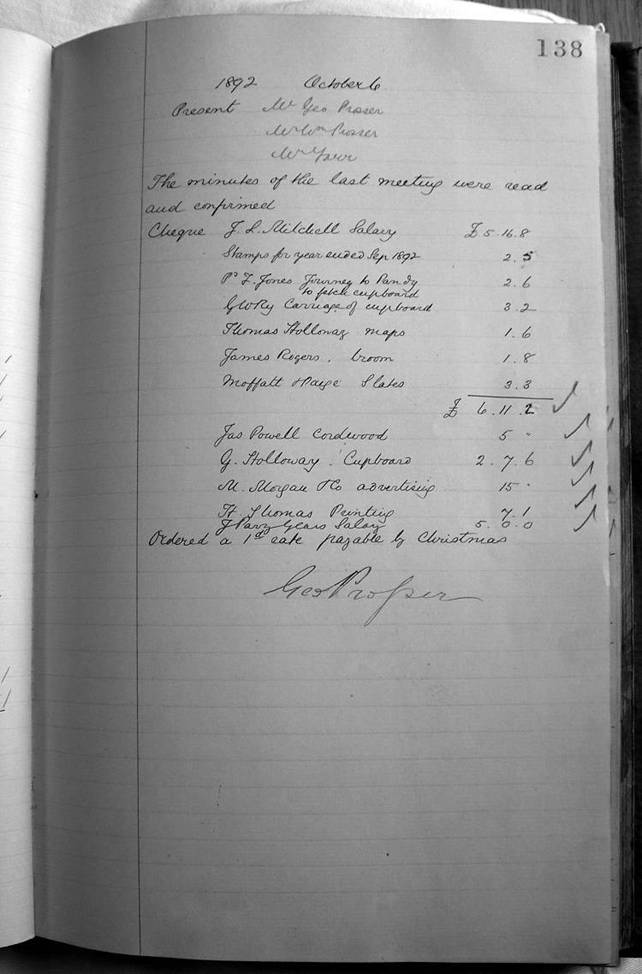 138
1892 October 6
Present Mr Geo Prosser
Mr Wm Prosser
Mr
The minutes of the last meeting were read
and confirmed
Cheque J. L. Mitchell Salary £ 5.16.8
Stamps for year ended Sep 1892 2.5
Pd F. Jones Journey to Pandy
to fetch cupboard 2.6
GWRy Carriage of cupboard 3.2
Thomas Holloway maps 1.6
James Rogers. broom 1.8
Moffatt & Paige Slates 3.3
£ 6.11.2
Jas Powell Cordwood 5 "
G. Holloway. Cupboard 2.7.6
M. Morgan & Co advertising 15 "
H. Thomas Printing 7.1
J Parry Years Salary 5.0.0
Ordered a 1st rate payable by Christmas
Geo Prosser